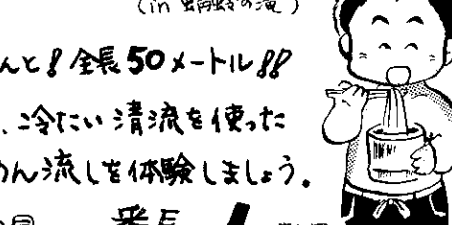 (in 蜻蛉の滝)
んと!全長50メートル!!
、冷たい清流を使った
めん流しを体験しましょう。